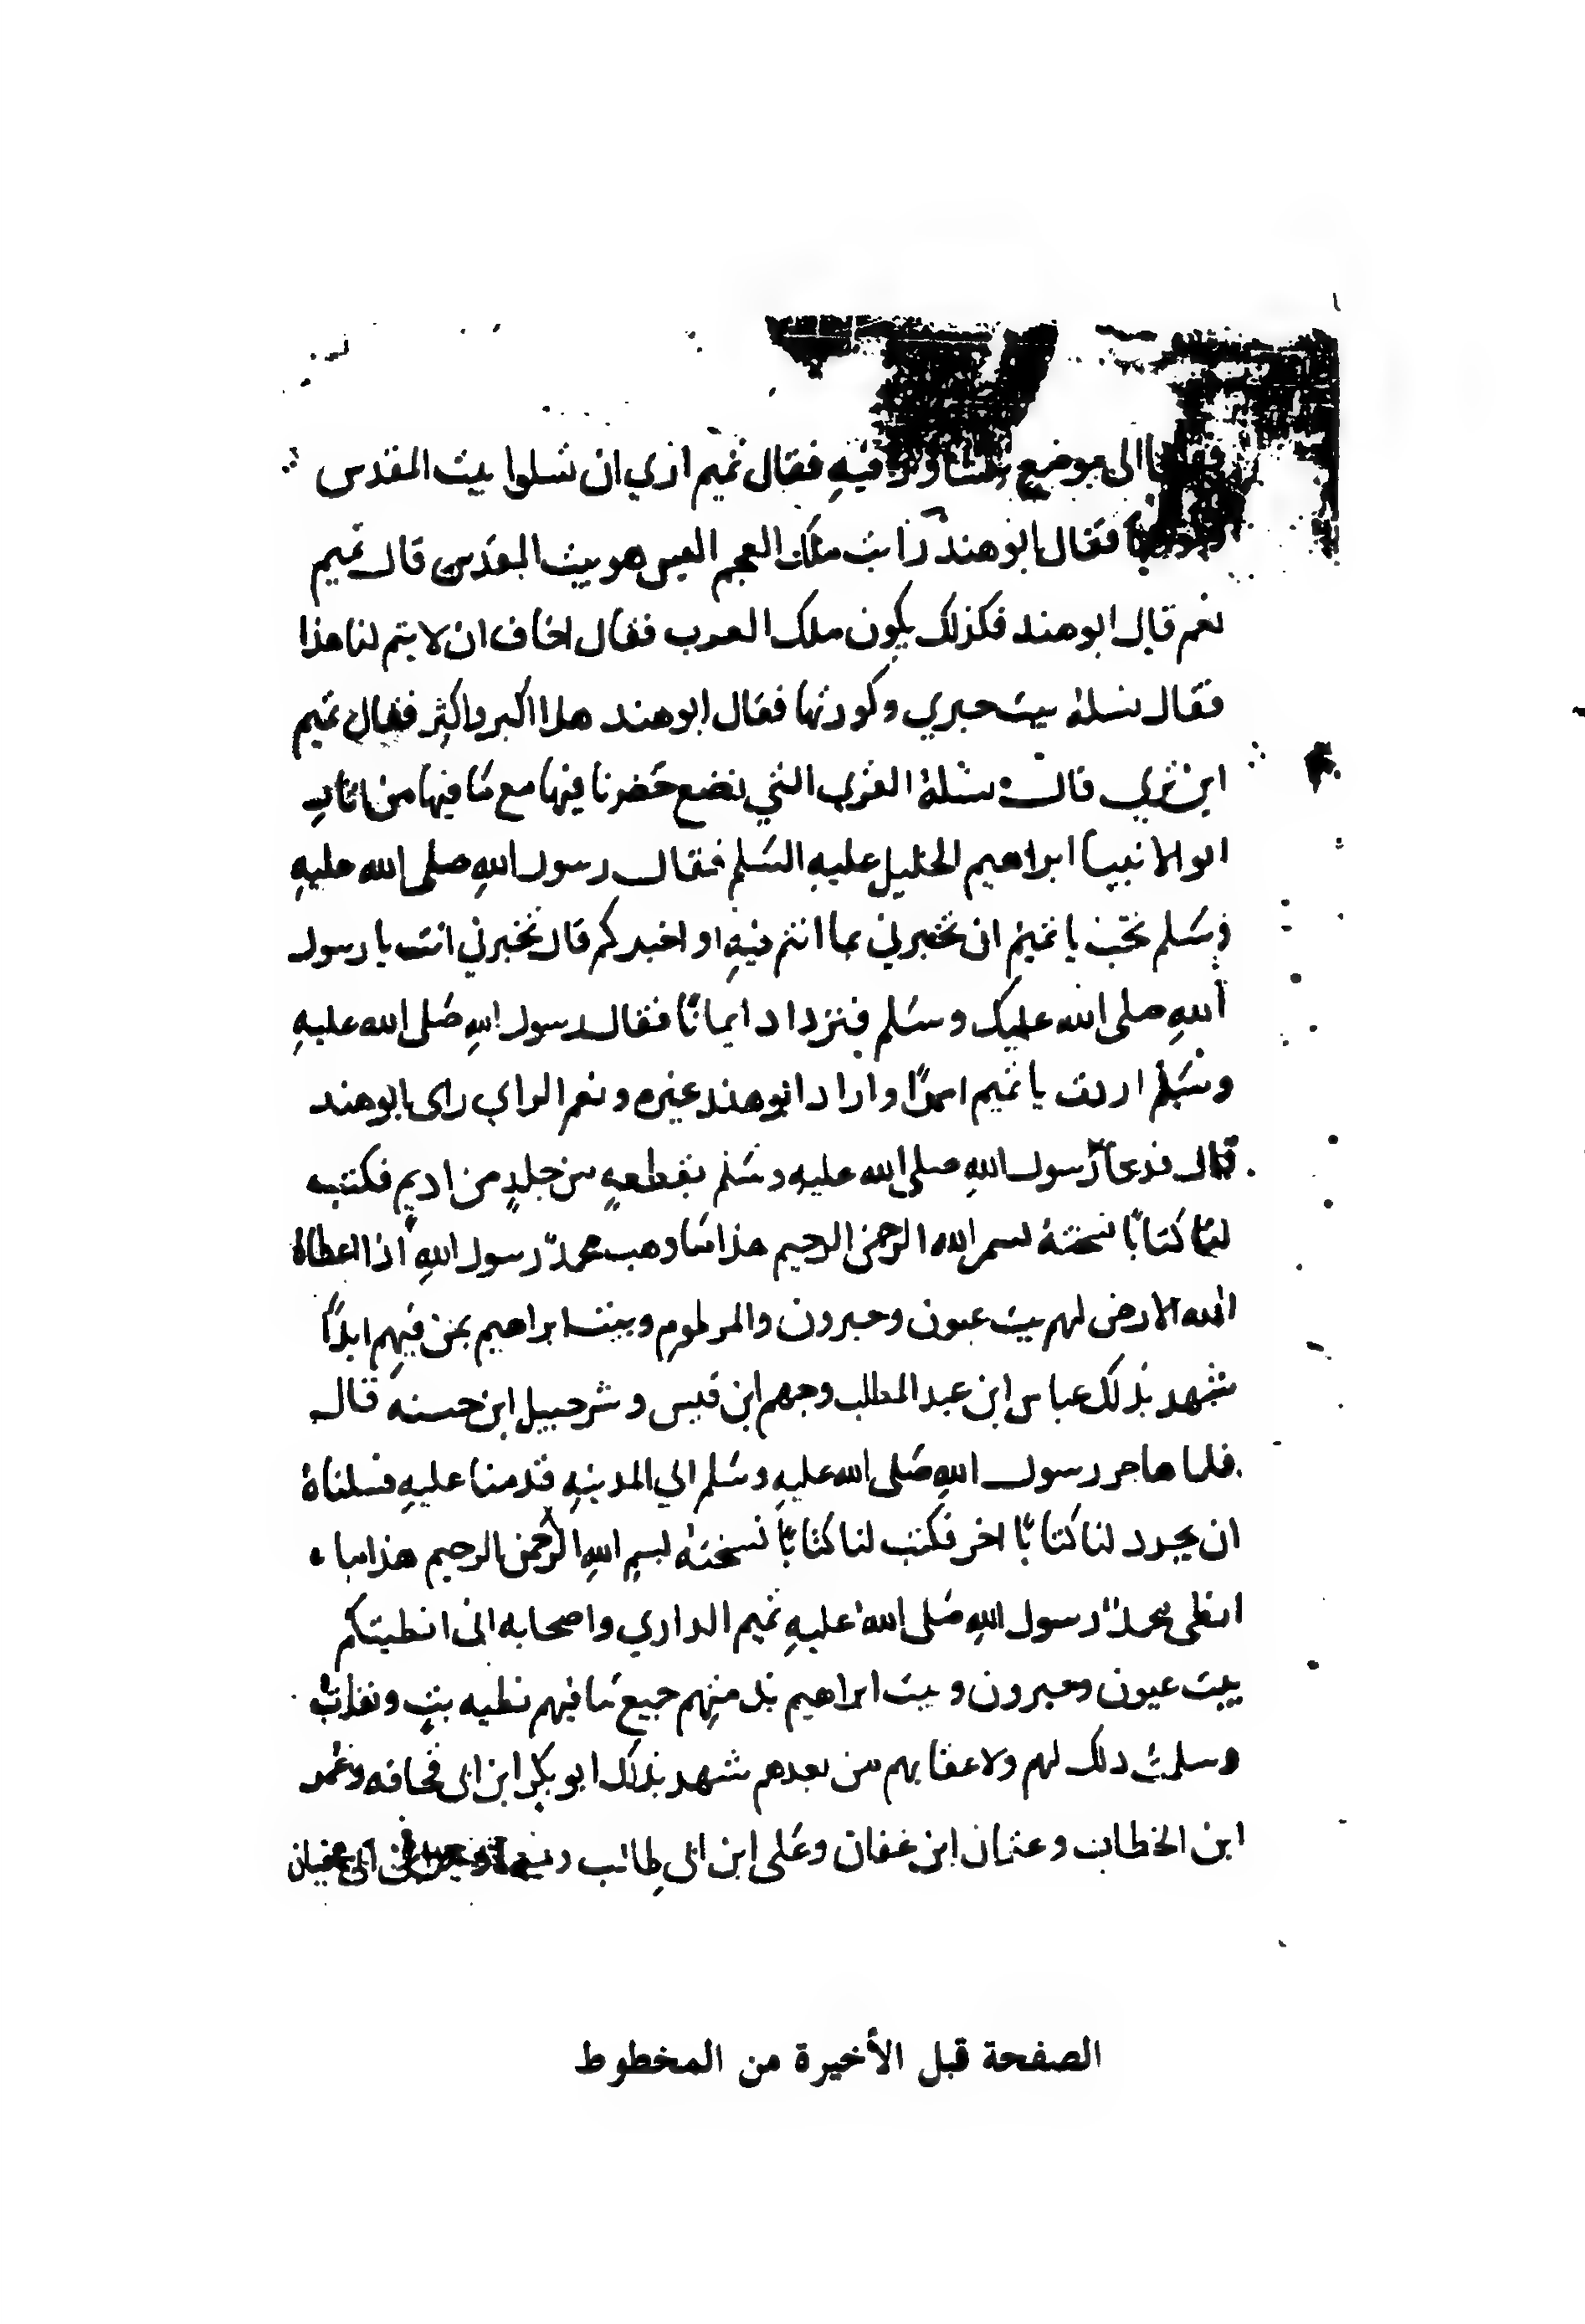 الى موضع نتشاور فيه فقال تميم ارى ان نسلوا بيت المقدس
فقال ابو هند رايت ملك العجم اليس هو بيت المقدس قال تميم
نعم قال ابو هند فكذلك يكون ملك العرب فقال اخاف ان لا يتم لنا هذا
فقال نسله بيت حبري وكورتها فقال ابو هند هذا اكبر واكثر فقال تميم
اين تري قال نسله القري التي نضع حضرنا فيها مع ما فيها من اثار
ابو الانبيا ابراهيم الخليل عليه السلم فقال رسول الله صلى الله عليه
وسلم تحب يا تميم ان تخبرني بما انتم فيه او اخبركم قال تخبرني انت يا رسول
الله صلى الله عليك وسلم فنزداد ايمانًا فقال رسول الله صلى الله عليه
وسلم اردت يا تميم امرًا واراد ابو هند غيره ونعم الراي راى ابو هند
قال فدعا رسول الله صلى الله عليه وسلم بقطعهٍ من جلدٍ من اديم فكتب
لنا كتابًا نسخته بسم الله الرحمن الرحيم هذا ما وهب محمدٌ رسول الله اذا اعطاه
الله الارض لهم بيت عيون وحبرون والمرطوم وبيت ابراهيم بمن فيهم ابدًا
شهد بذلك عباس ابن عبد المطلب وجهم ابن قيس وشرحبيل ابن حسنه قال
فلما هاجر رسول الله صلى الله عليه وسلم الي المدينه قدمنا عليه فسلناه
ان يجدد لنا كتابًا اخر فكتب لنا كتابًا نسخته بسم الله الرحمن الرحيم هذا ما
انطى محمدٌ رسول الله صلى الله عليه تميم الداري واصحابه انى انطيتكم
بيت عيون وحبرون وبيت ابراهيم بذمتهم جميع ما فيهم نطيه بتٍ ونفذت
وسلمت ذلك لهم ولاعقابهم من بعدهم شهد بذلك ابو بكر ابن ابى قحافه وعمر
ابن الخطاب وعثمان ابن عفان وعلى ابن ابى طالب
الصفحة قبل الأخيرة من المخطوط